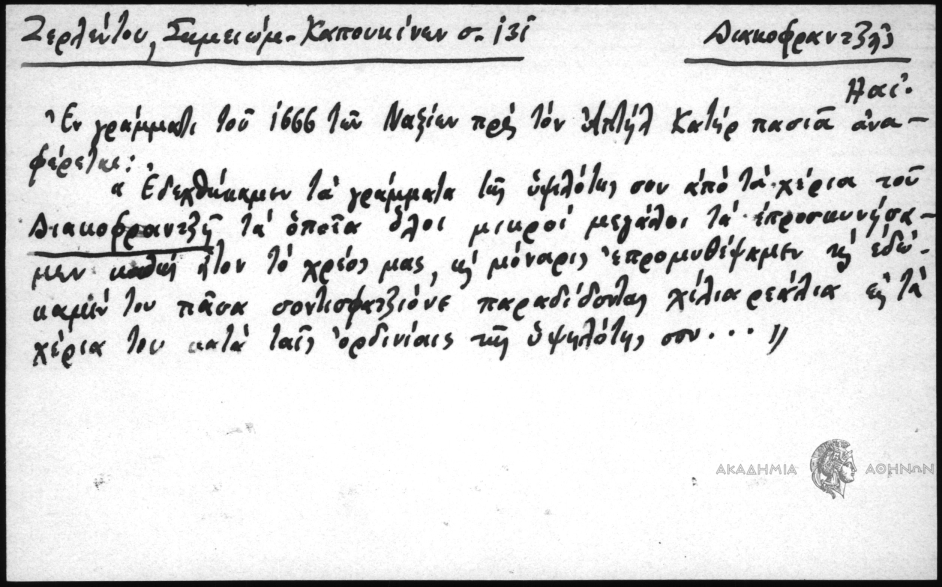 Ζερλέντου, Σημειώμ. Καπουκίνων σ. 131 Διακοφραντζῆς
Πασ.
Ἐν γράμματι τοῦ 1666 τῶν Ναξίων πρὸς τὸν Ἀπτὴλ Κατὴρ πασιᾶ ἀνα-
φέρεται:
« Ἐδεχθήκαμεν τὰ γράμματα τῆς ὑψηλότης σου ἀπὸ τὰ χέρια τοῦ
Διακοφραντζῆ τὰ ὁποῖα ὅλοι μικροί μεγάλοι τὰ ἐπροσκυνήσα-
μεν καθὼς ἦτον τὸ χρέος μας, κὶ μόναρις ἐπρομυθέψαμεν κὶ ἐδώ-
καμέν του πᾶσα σοντισφατζιόνε παραδίδοντας χίλια ρεάλια εἰς τὰ
χέρια του κατὰ ταῖς ὀρδινίαις τῆς ὑψηλότης σου... »
ΑΚΑΔΗΜΙΑ ΑΘΗΝΩΝ